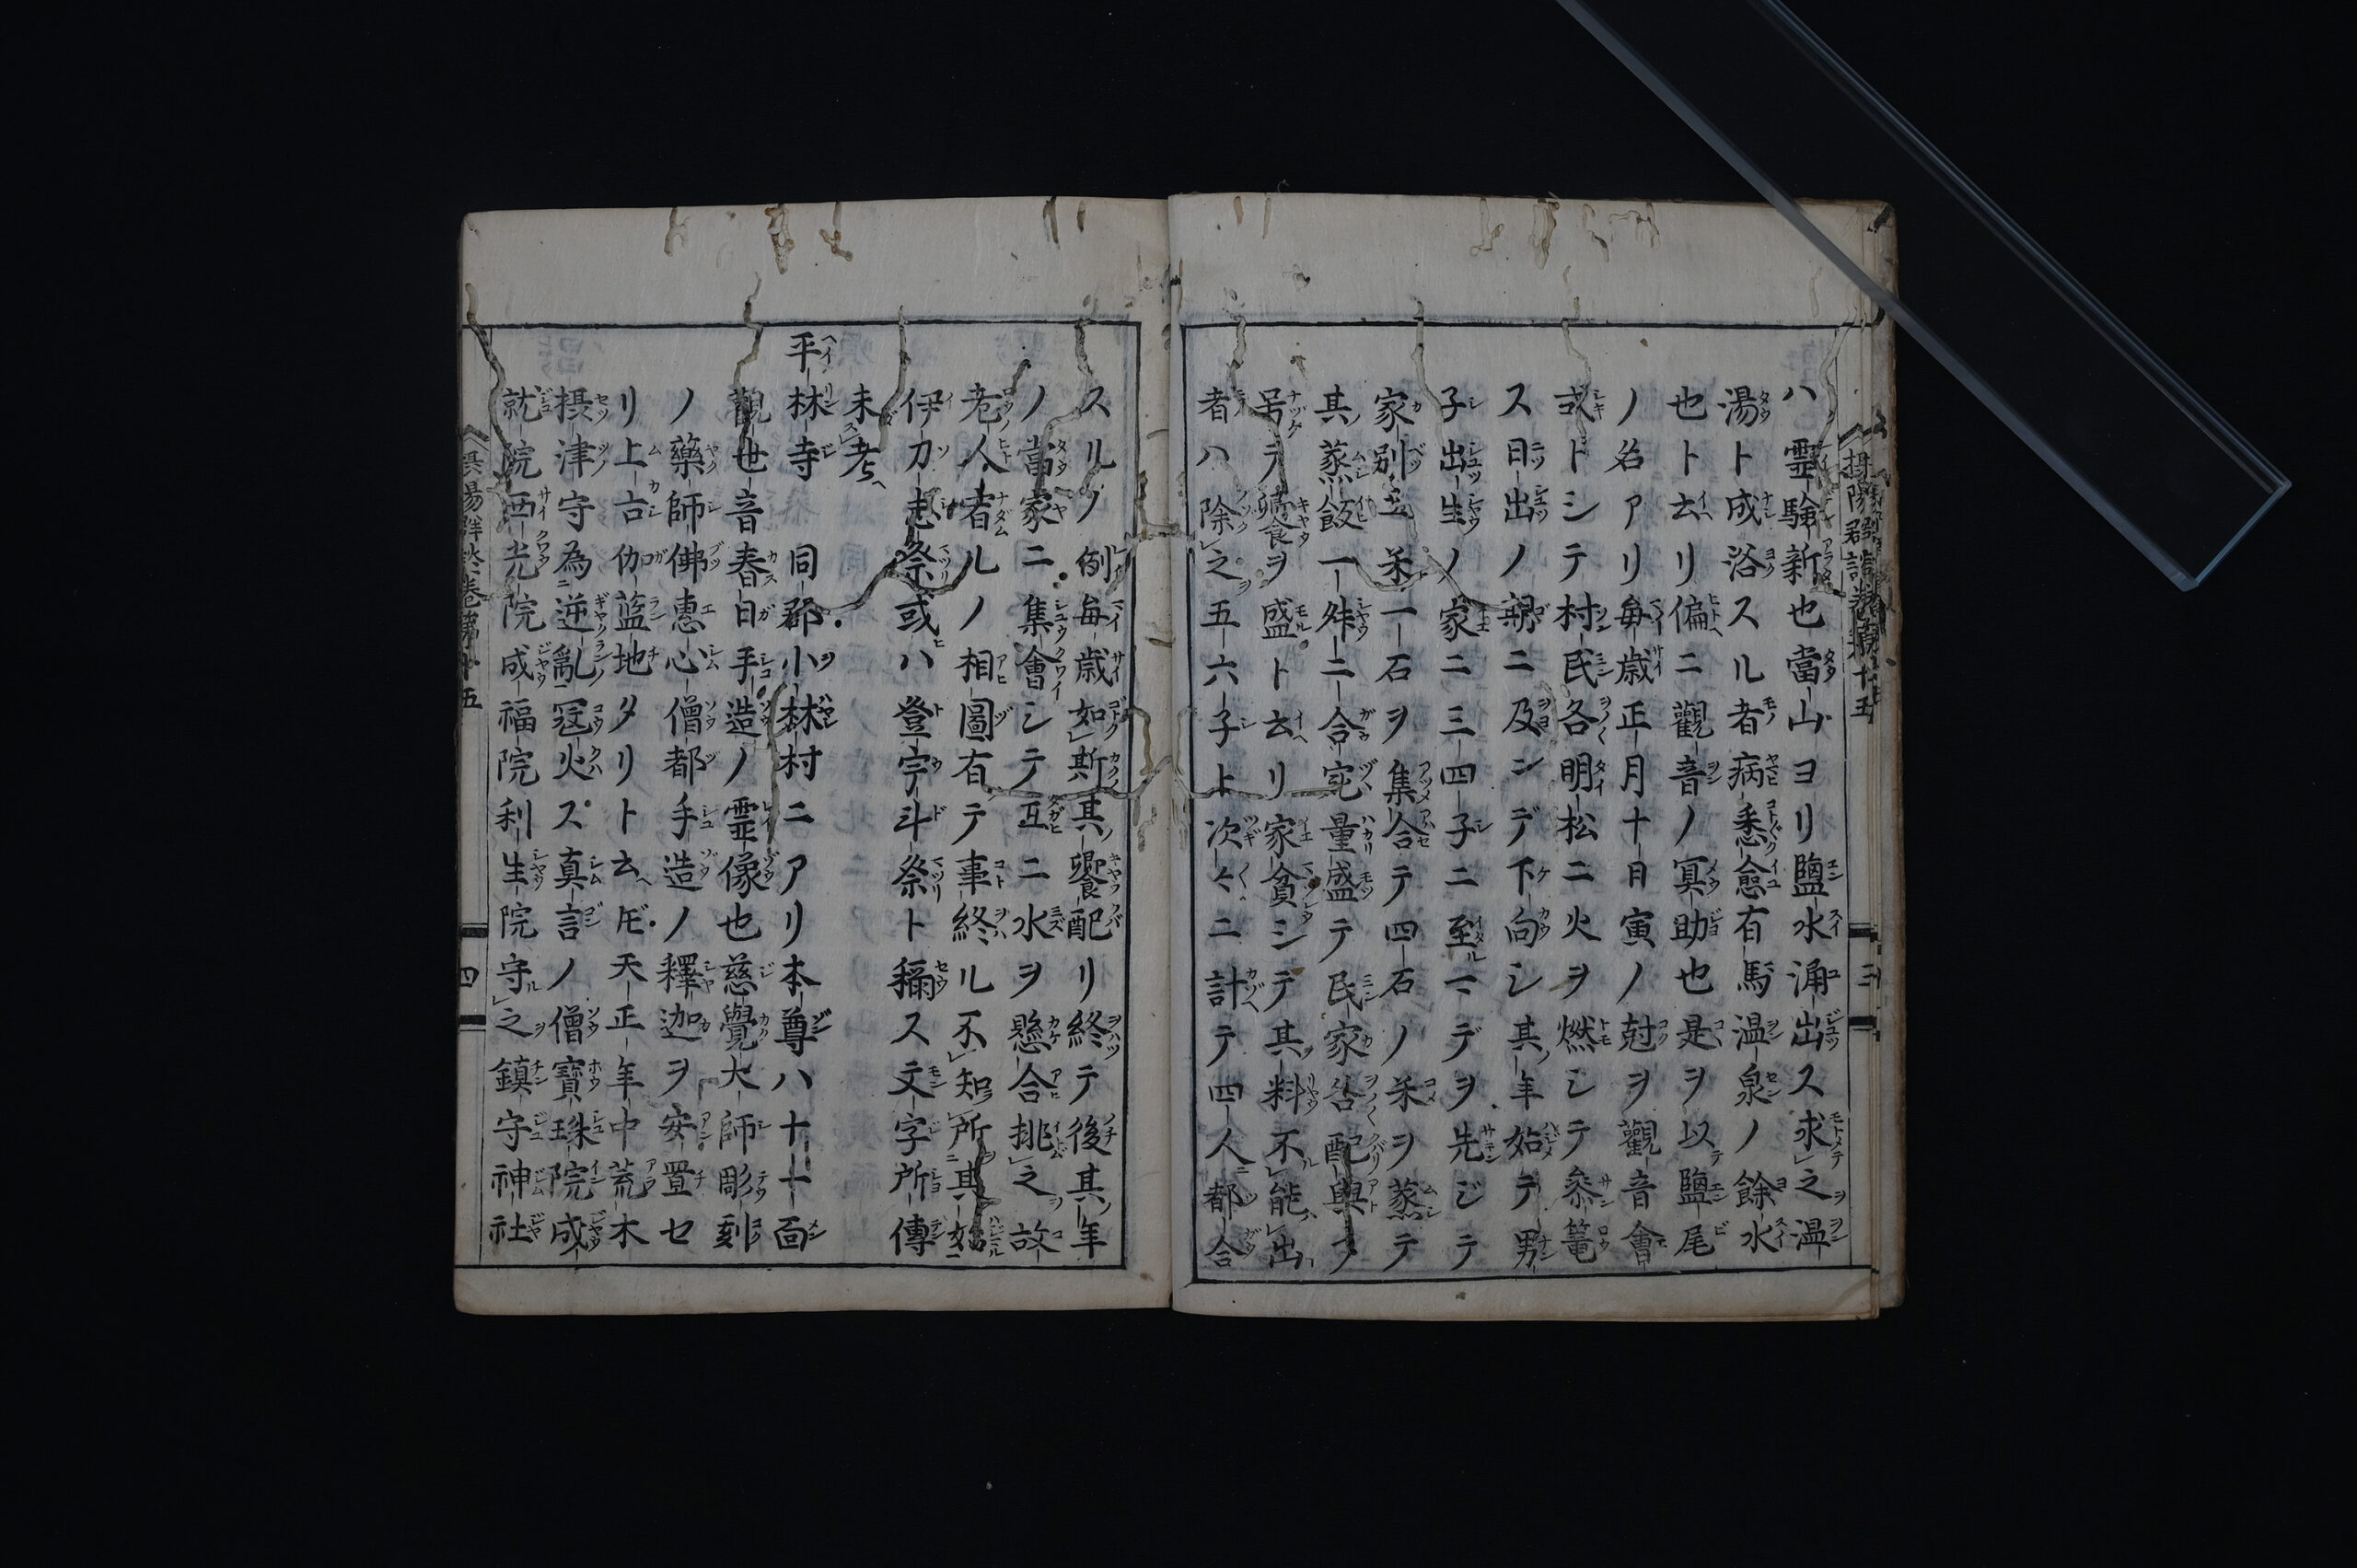 ハ霊驗新也當山ヨリ鹽水涌出ス求之温
湯ト成浴スル者病悉愈有馬温泉ノ餘水
也ト云リ偏ニ觀音ノ冥助也是ヲ以鹽尾
ノ名アリ毎歳正月十日寅ノ尅ヲ觀音會
式トシテ村民各明松ニ火ヲ燃シテ叅篭
ス日出ノ朝ニ及ンデ下向シ其年始テ男
子出生ノ家ニ三四子ニ至マデヲ先ジテ
家別五米一石ヲ集合テ四石ノ米ヲ蒸テ
其蒸飯一舛二合宛量盛テ民家各配與フ
号テ饗ヲ盛ト云リ家貧シテ其料不能出
者ハ除之五六子ト次々ニ計テ四人都合
スルノ例毎歳如斯其饗配リ終テ後其年
ノ當家ニ集會シテ互ニ水ヲ懸合挑之故
老人者ルノ相圖有テ事終ル不知所其始
伊力志祭或ハ登宇斗祭ト稱ス文字所傳
未考
平林寺同郡小林村ニアリ本尊ハ十一面
觀世音春日手造ノ霊像也慈覺大師彫刻
ノ藥師佛惠心僧都手造ノ釋迦ヲ安置セ
リ上古伽藍地タリト云𪜈天正年中荒木
摂津守為逆亂冦火ス真言ノ僧寶珠院成
就院西光院成福院利生院守之鎮守神社
摂陽群談巻第十五
三
摂陽群談巻第十五
四